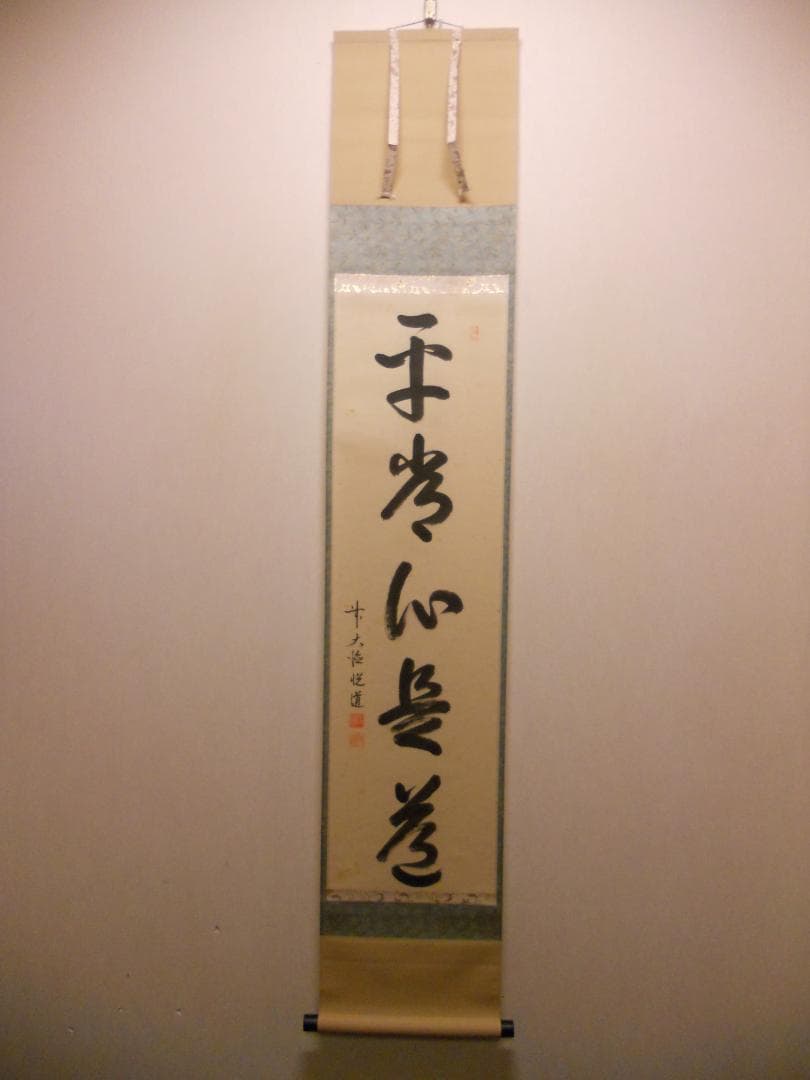 平常心是道
大徳悦道